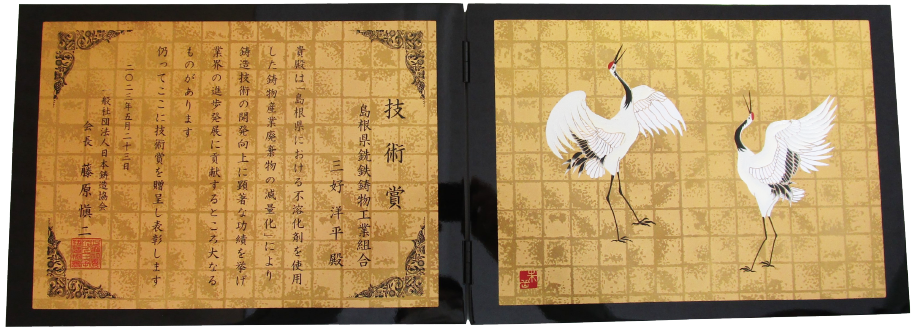 技術賞
島根県銑鉄鋳物工業組合
三好洋平殿
貴殿は「島根県における不溶化剤を使用
した鋳物産業廃棄物の減量化」により
鋳造技術の開発向上に顕著な功績を挙げ
業界の進歩発展に貢献するところ大なる
ものがあります
仍ってここに技術賞を贈呈し表彰します
二〇二三年五月二十三日
一般社団法人日本鋳造協会
会長 藤原愼二